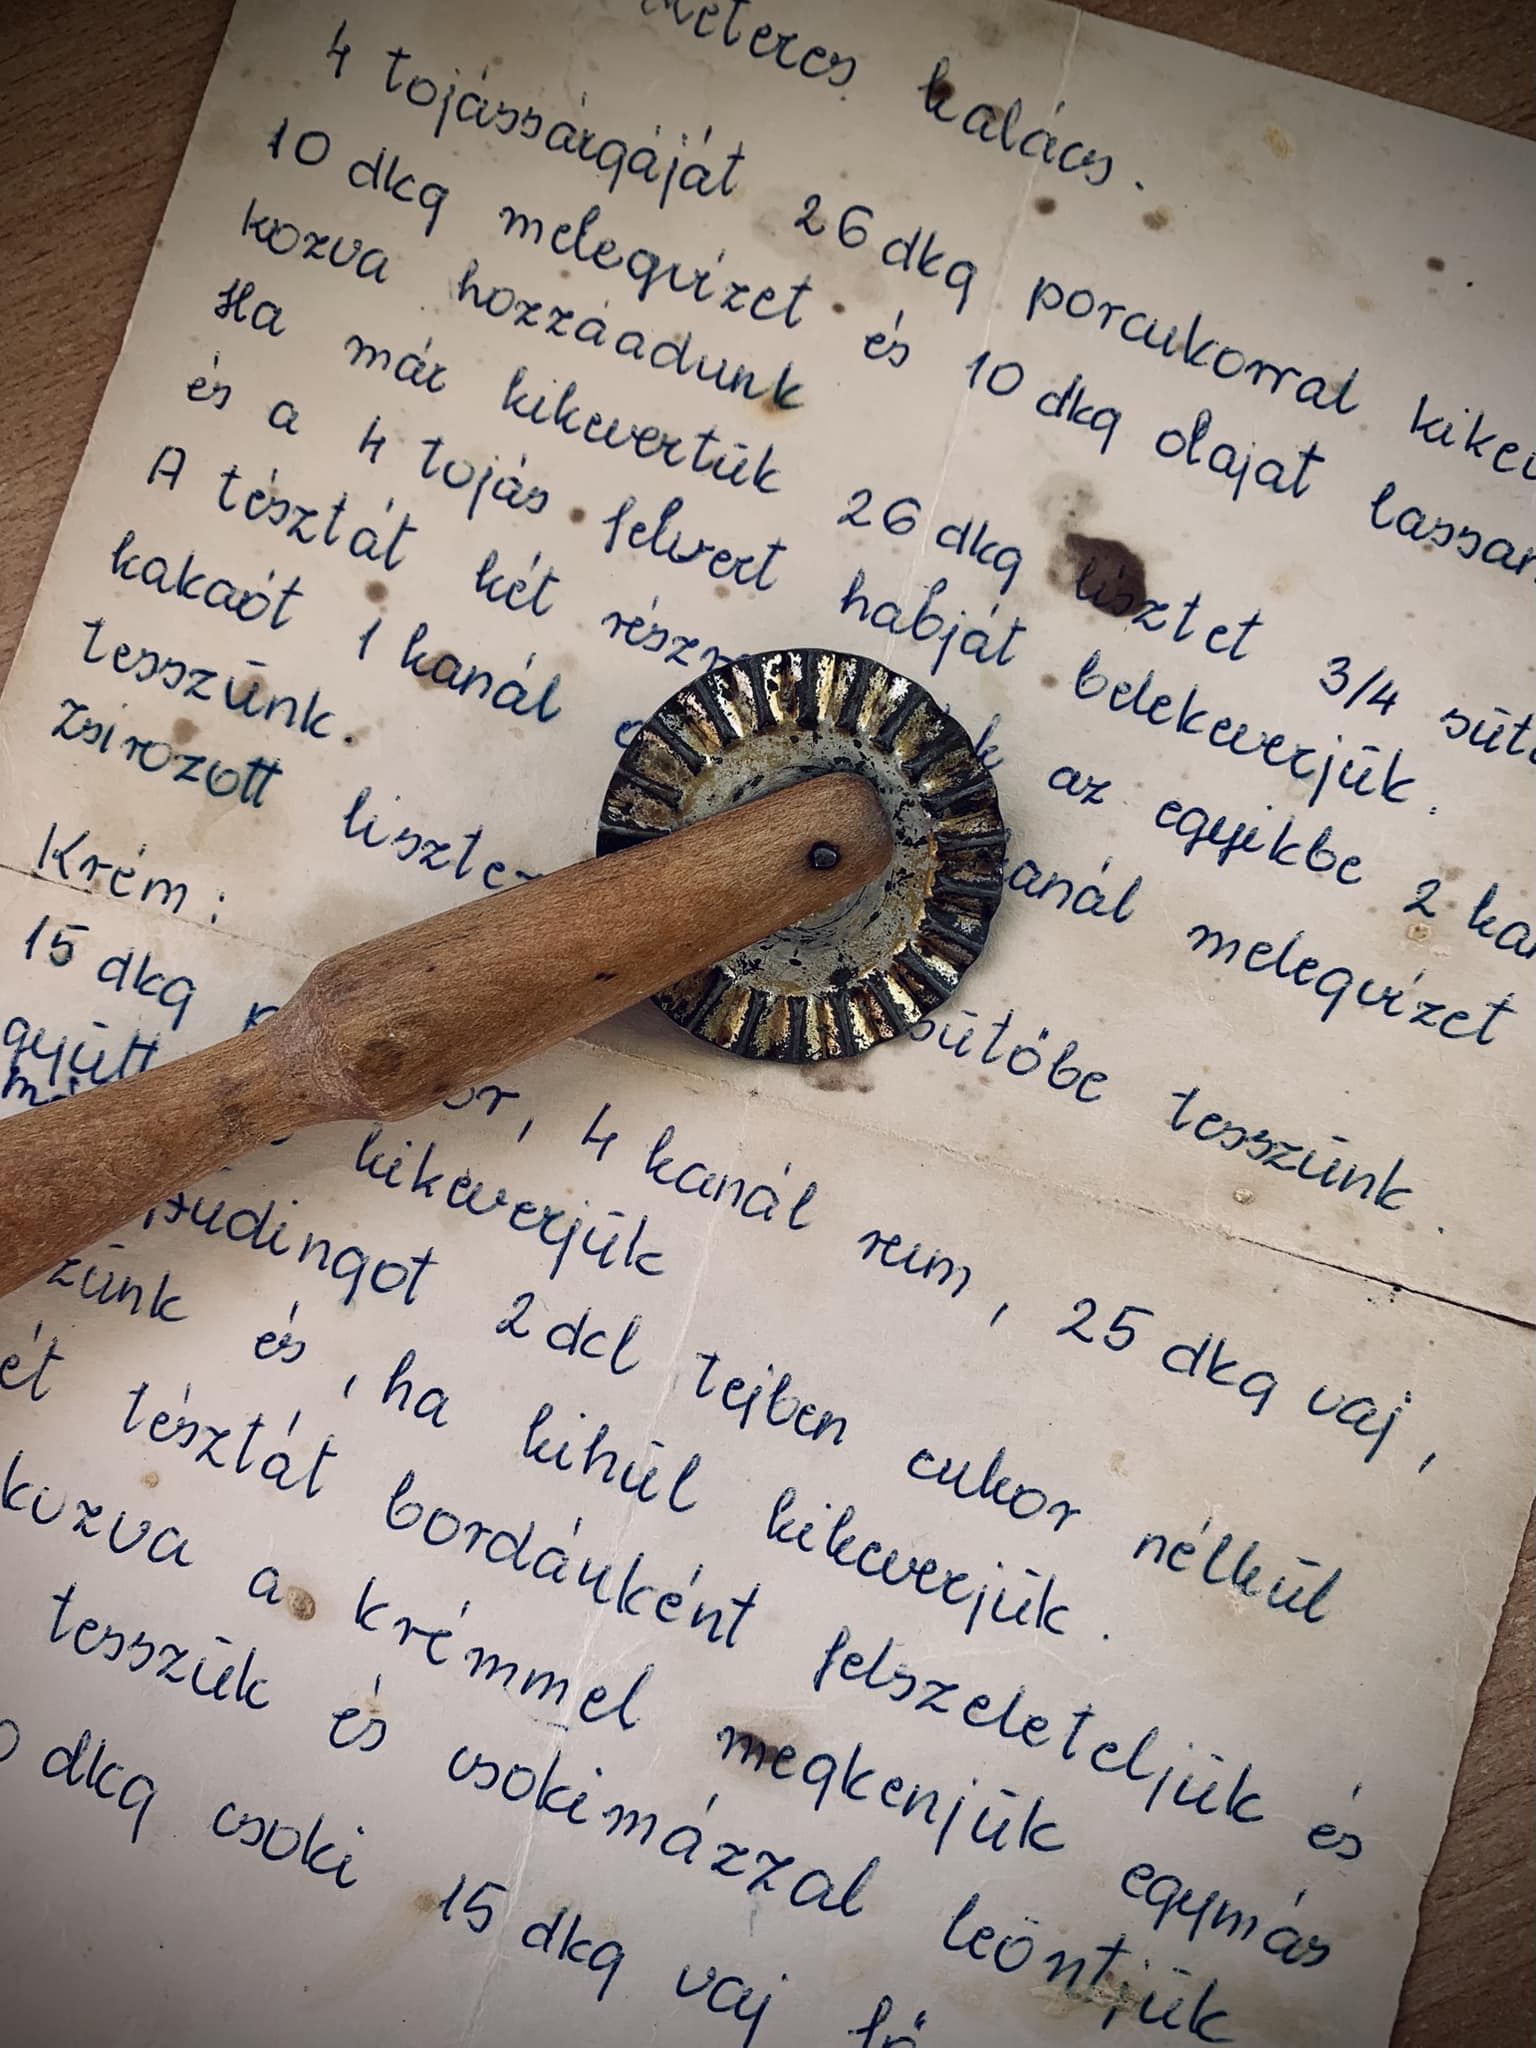 Méteres kalács.
4 tojássárgáját 26 dkg porcukorral
10 dkg melegvizet és 10 dkg olajat lassan
kozva hozzáadunk
Ha már kikevertük 26 dkg lisztet 3/4
és a 4 tojás felvert habját belekeverjük.
A tésztát két az egyikbe 2
kakaót 1 kanál melegvizet
tesszünk.
zsirozott sütőbe tesszünk.
Krém:
15 dkg 4 kanál rum, 25 dkg vaj,
együtt kikeverjük
pudingot 2 dcl tejben cukor nélkül
zünk és, ha kihül kikeverjük.
ét tésztát bordánként felszeleteljük és
kozva a krémmel megkenjük egymás
tesszük és csokimázzal leöntjük
dkg csoki 15 dkg vaj